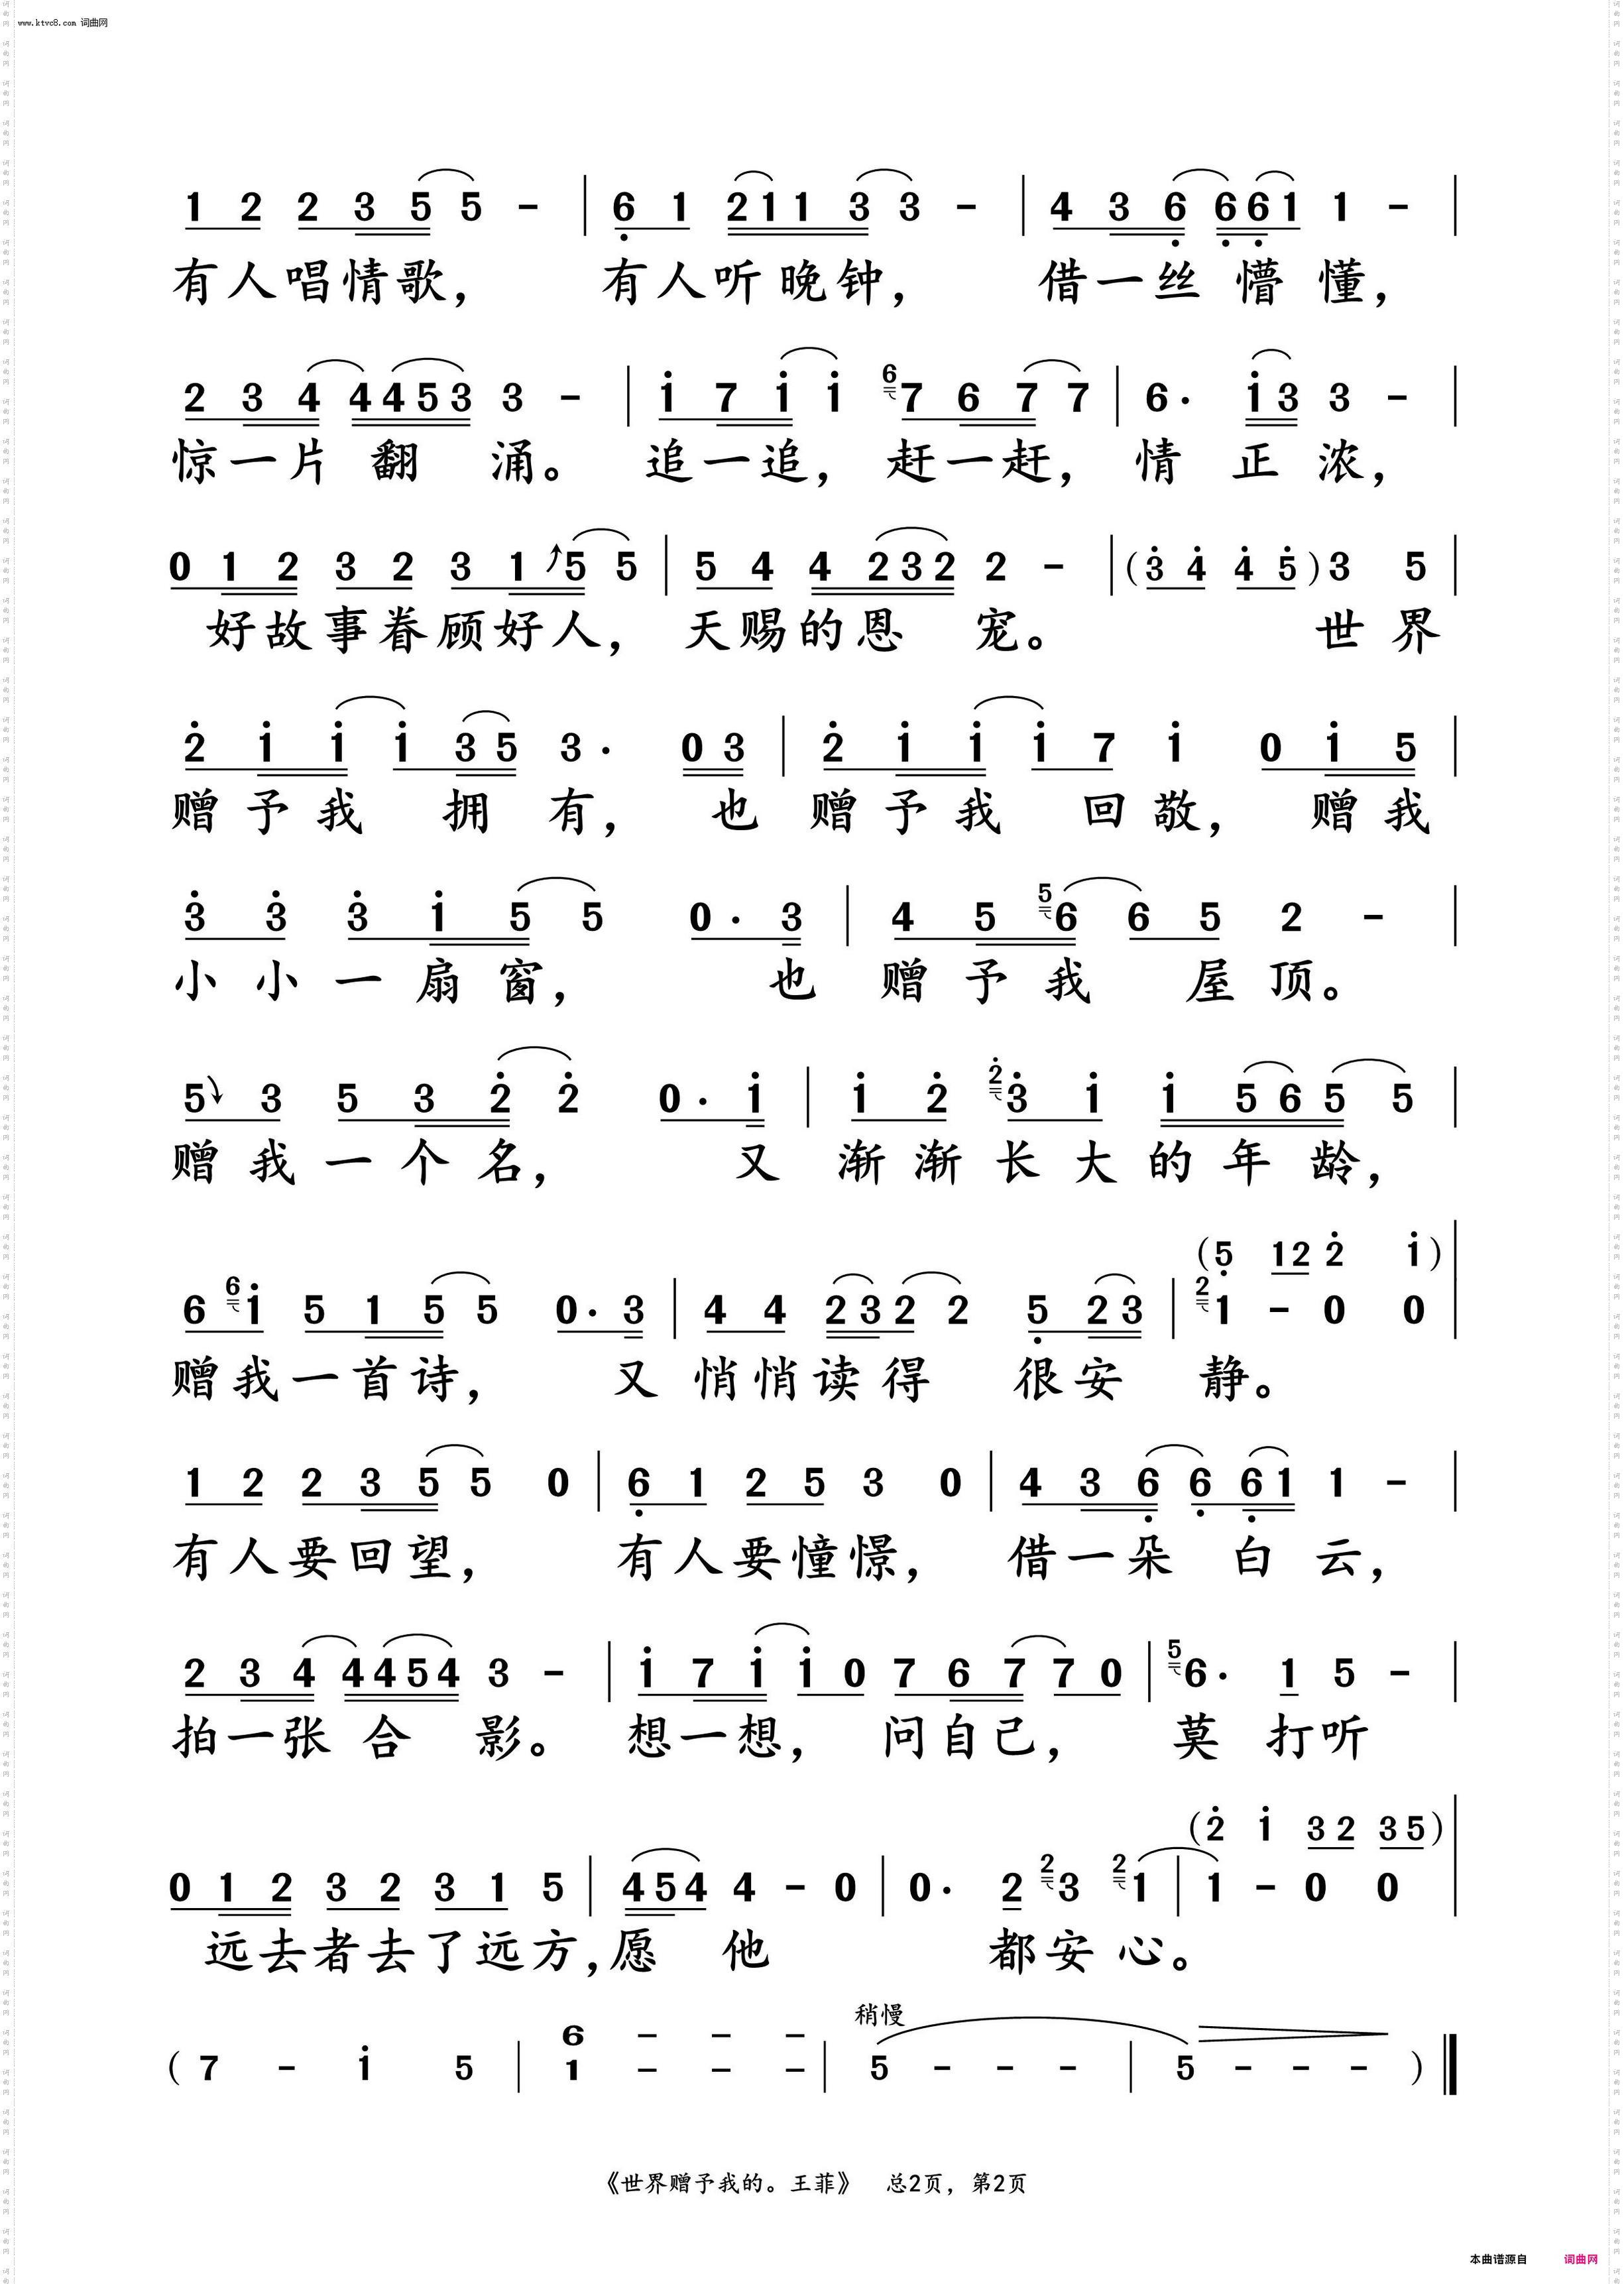 www.ktvc8.com 词曲网
1 2 2 3 5 5 - | 6 1 2 1 1 3 3 - | 4 3 6 6 6 1 1 - |
有人唱情歌， 有人听晚钟， 借一丝懵懂，
2 3 4 4 4 5 3 3 - | 1 7 1 1 6 7 6 7 7 | 6· 1 3 3 - |
惊一片翻涌。 追一追， 赶一赶， 情正浓，
0 1 2 3 2 3 1 5 5 | 5 4 4 2 3 2 2 - | （3 4 4 5）3 5 |
好故事眷顾好人， 天赐的恩宠。 世界
2 1 1 1 3 5 3· 0 3 | 2 1 1 1 7 1 0 1 5 |
赠予我拥有， 也赠予我回敬， 赠我
3 3 3 1 5 5 0· 3 | 4 5 5 6 6 5 2 - |
小小一扇窗， 也赠予我屋顶。
5 3 5 3 2 2 0· 1 | 1 2 2 3 1 1 5 6 5 5 |
赠我一个名， 又渐渐长大的年龄，
（5 1 2 2 1）
6 6 1 5 1 5 5 0· 3 | 4 4 2 3 2 2 5 2 3 | 2 1 - 0 0 |
赠我一首诗， 又悄悄读得很安静。
1 2 2 3 5 5 0 | 6 1 2 5 3 0 | 4 3 6 6 6 1 1 - |
有人要回望， 有人要憧憬， 借一朵白云，
2 3 4 4 4 5 4 3 - | 1 7 1 1 0 7 6 7 7 0 | 5 6· 1 5 - |
拍一张合影。 想一想， 问自己， 莫打听
（2 1 3 2 3 5）
0 1 2 3 2 3 1 5 | 4 5 4 4 - 0 | 0· 2 2 3 2 1 | 1 - 0 0 |
远去者去了远方，愿他 都安心。
稍慢
6 - - -
（7 - 1 5 | 1 - - - | 5 - - - | 5 - - - ）
《世界赠予我的。王菲》 总2页，第2页
本曲谱源自 词曲网